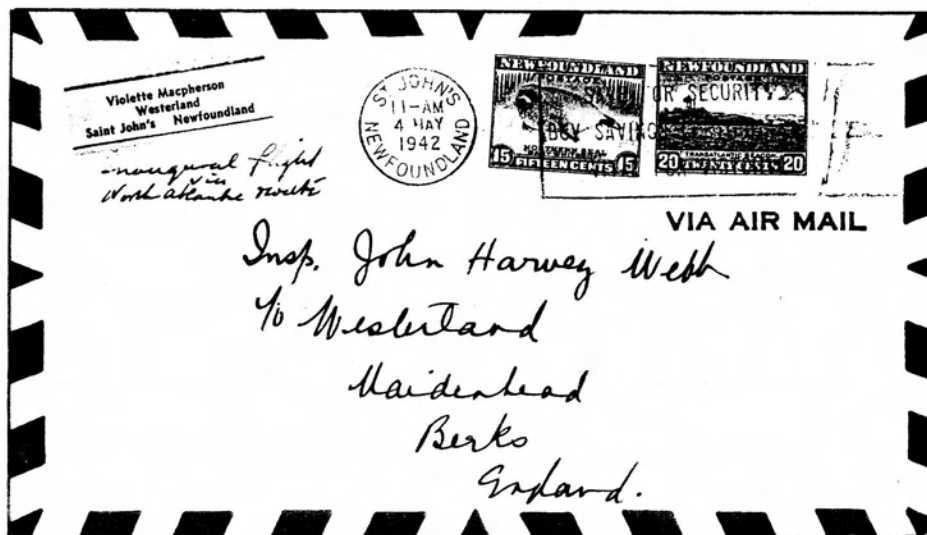 Violette Macpherson
Westerland
Saint John's Newfoundland
inaugural flight
via
North Atlantic route
ST JOHN'S
11-AM
4 MAY
1942
NEWFOUNDLAND
NEWFOUNDLAND
POSTAGE
NORTHERN SEAL
15 FIFTEEN CENTS 15
NEWFOUNDLAND
POSTAGE
TRANSATLANTIC BEACON
20 TWENTY CENTS 20
OR SECURITY
SAVING
VIA AIR MAIL
Insp. John Harvey Webb
c/o Westerland
Maidenhead
Berks
England.